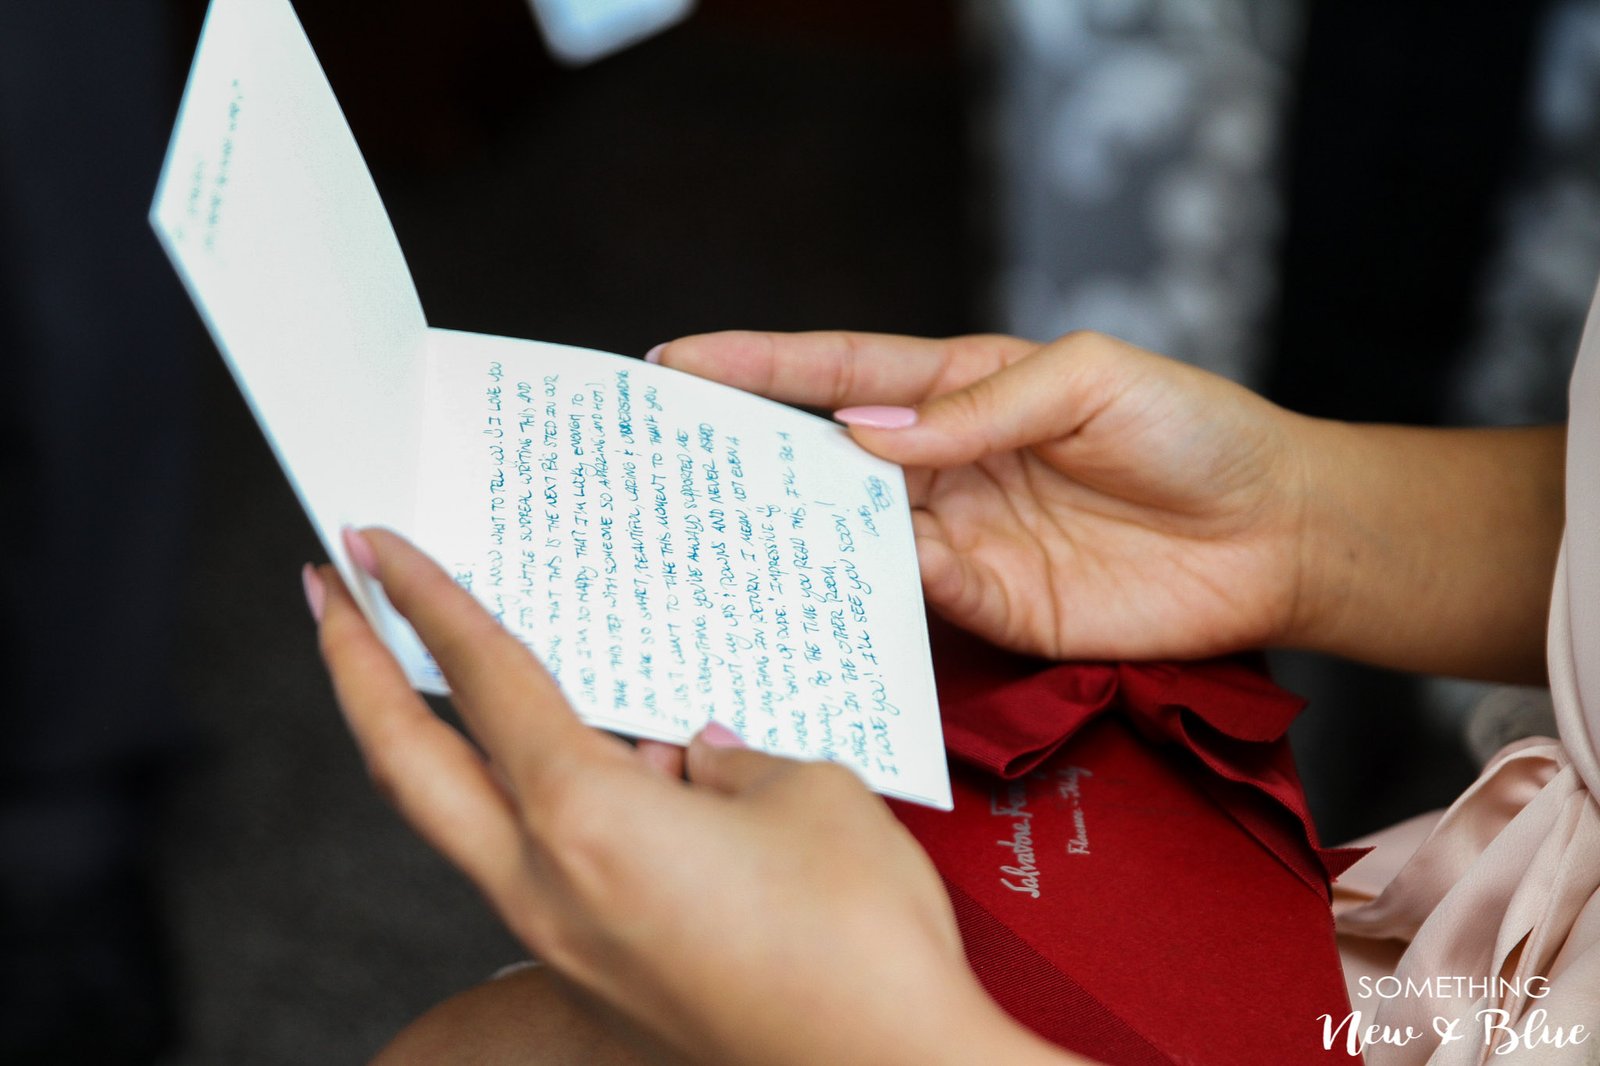 KNOW WHAT TO TELL YOU. I LOVE YOU
A LITTLE SURREAL WRITING THIS AND
THAT THIS IS THE NEXT BIG STEP IN OUR
LIVES I'M SO HAPPY THAT I'M LUCKY ENOUGH TO
TAKE THIS STEP WITH SOMEONE SO AMAZING (AND HOT).
YOU ARE SO SMART, BEAUTIFUL, CARING & UNDERSTANDING
I JUST WANT TO TAKE THIS MOMENT TO THANK YOU
EVERYTHING. YOU'VE ALWAYS SUPPORTED ME
THROUGHOUT MY UPS & DOWNS AND NEVER ASKED
FOR ANYTHING IN RETURN. I MEAN, NOT EVEN A
"SHUT UP DUDE." IMPRESSIVE
ANYWAY, BY THE TIME YOU READ THIS, I'LL BE A
IN THE OTHER ROOM.
I LOVE YOU! I'LL SEE YOU SOON!
LOVE,
Salvatore
SOMETHING
New & Blue